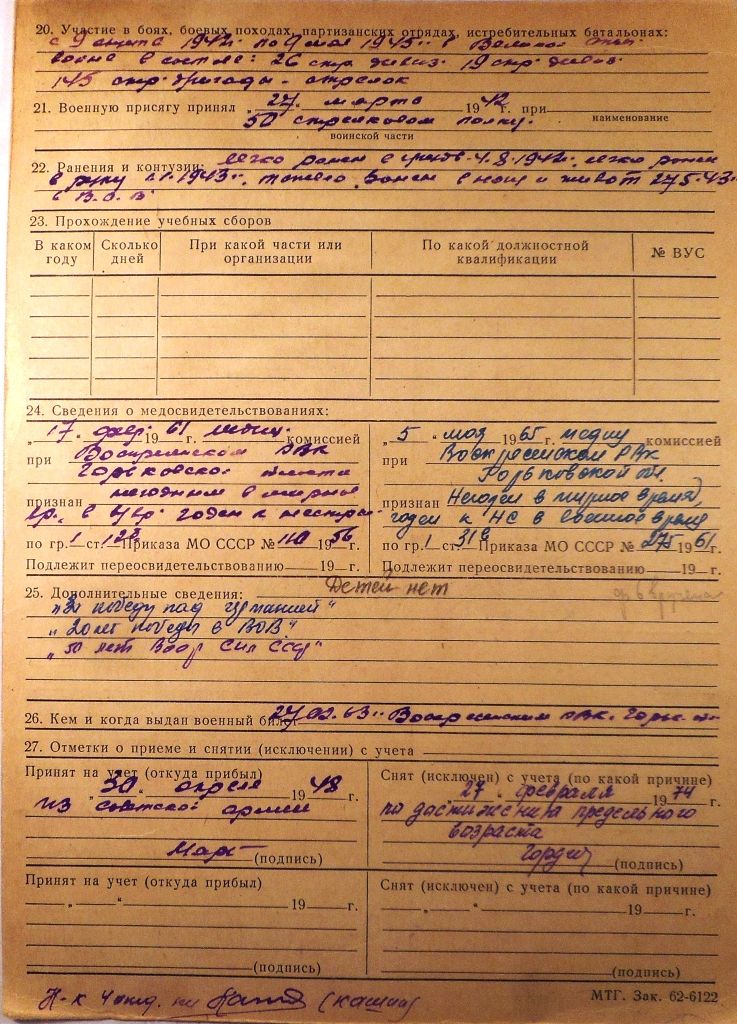 20. Участие в боях, боевых походах, партизанских отрядах, истребительных батальонах:
с 9 августа 1942г. по 9 мая 1945г. в Великой отеч.
войне в составе: 26 стр. дивиз. 19 стр. дивиз.
145 стр. бригады - стрелок
21. Военную присягу принял „27. марта 1942г. при
наименование
50 стрелковом полку.
воинской части
22. Ранения и контузии: легко ранен в 4.8.1942г. легко ранен
в руку 1.1943г. тяжело ранен в ноги и живот 27.5.43г.
в В.О.В.
23. Прохождение учебных сборов
В каком году
Сколько дней
При какой части или организации
По какой должностной квалификации
№ ВУС
24. Сведения о медосвидетельствованиях:
„17. фев. 1961 комиссией
при Воскресенском РВК
Горьковской области
признан негодным в мирное
вр., в в/вр. годен к нестрое.
по гр. 1 ст. 12в Приказа МО СССР № 110 1956
Подлежит переосвидетельствованию 19 г.
„5 „ мая 1965г. медиц комиссией
при Воскресенском РВК
Горьковской обл.
признан Негоден в мирное время,
годен к НС в военное время
по гр. 1 ст. 31в Приказа МО СССР № 275 1961г.
Подлежит переосвидетельствованию 19 г.
25. Дополнительные сведения: Детей нет
„За победу над Германией"
ф 6 вручена
„20 лет победы в ВОВ"
„50 лет Воор Сил СССР"
26. Кем и когда выдан военный билет 27.02.63г. Воскресенским РВК. Горьк. о
27. Отметки о приеме и снятии (исключении) с учета
Принят на учет (откуда прибыл)
„30" апреля 1948г.
из советской армии
(подпись)
Снят (исключен) с учета (по какой причине)
„27" февраля 1974
по достижении предельного
возраста
(подпись)
Принят на учет (откуда прибыл)
„ " 19 г.
(подпись)
Снят (исключен) с учета (по какой причине)
„ " 19 г.
(подпись)
Н-к 4 отд. (Кашин)
МТГ. Зак. 62-6122